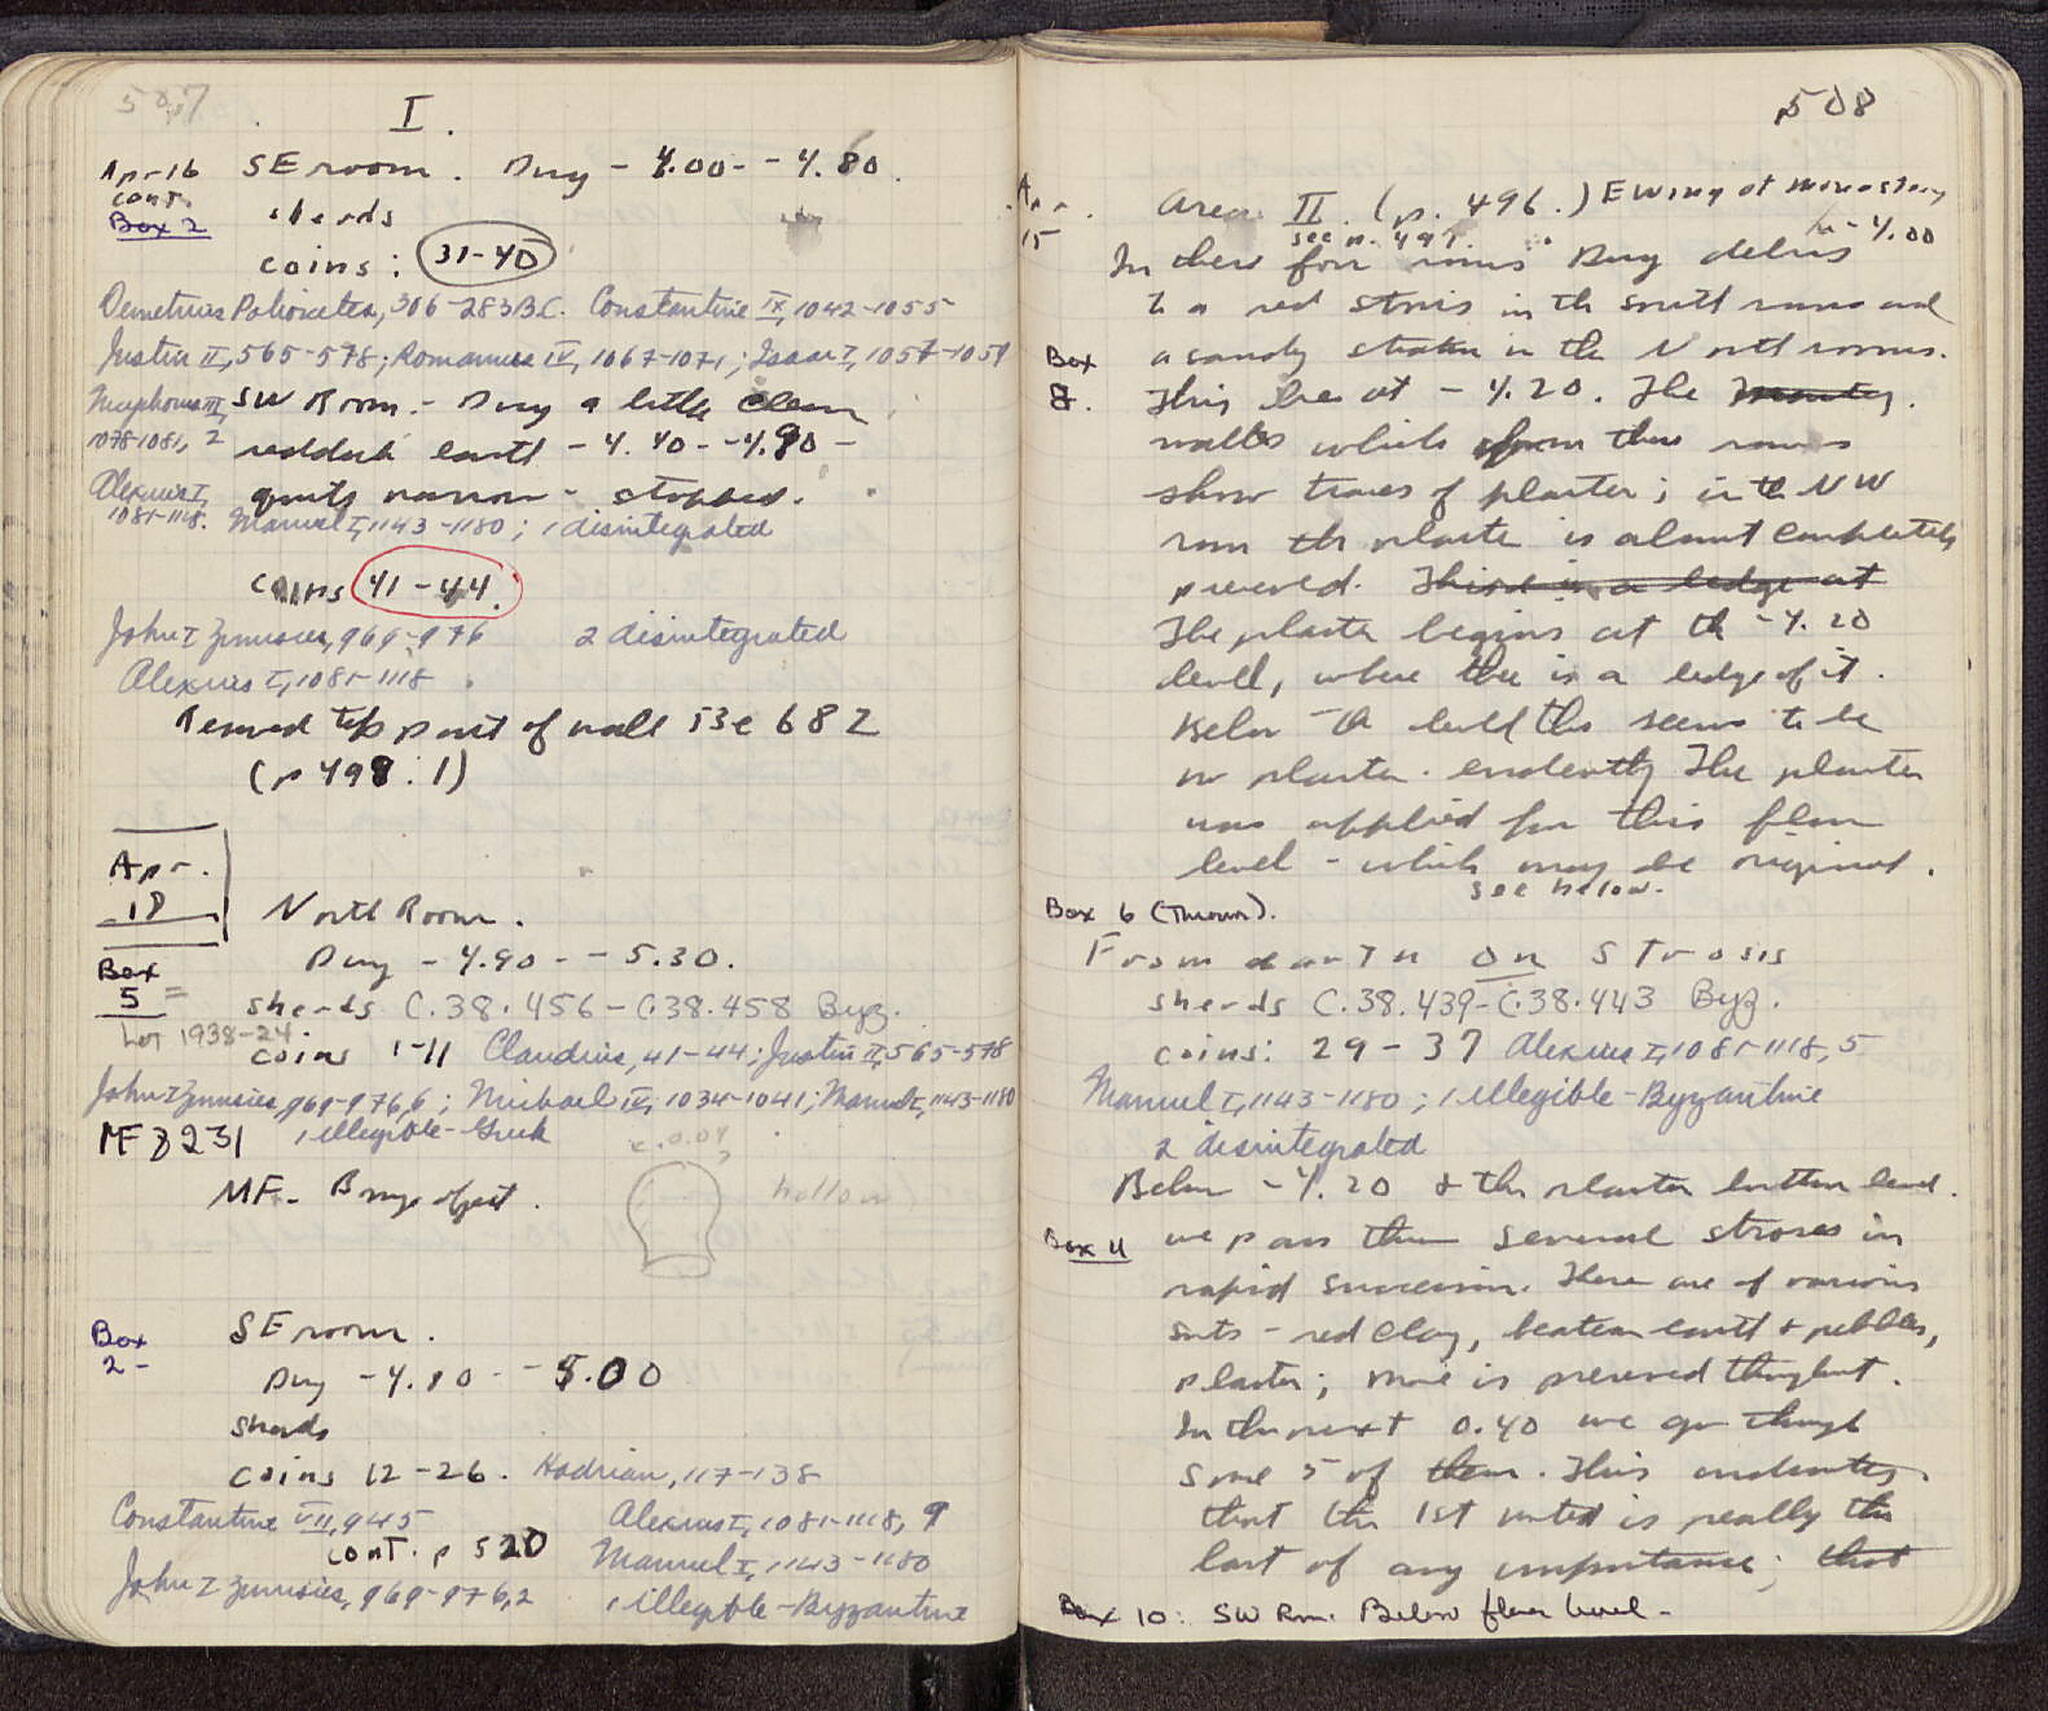 507
I.
Apr 16 SE room. Dug - 4.00 - - 4.80.
cont.
Box 2 sherds
coins: 31-40
Demetrius Poliorcetes, 306-283 B.C. Constantine IX, 1042-1055
Justin II, 565-578; Romanus IV, 1067-1071; Isaac I, 1057-1059
Nicephorus III, SW Room. - Dug a little clean
1078-1081, 2 reddish earth - 4.40 - - 4.90 -
Alexius I, quite narrow - stopped.
1081-1118. Manuel I, 1143-1180; 1 disintegrated
coins 41-44.
John I Zimisces, 969-976 2 disintegrated
Alexius I, 1081-1118
Removed top part of wall 682
(p 498 : 1)
Apr.
18
North Room.
Dug - 4.90 - - 5.30.
Box
5 =
sherds C.38.456-C.38.458 Byz.
Lot 1938-24
coins 1-11 Claudius, 41-44; Justin II, 565-578
John I Zimisces, 969-976, 6; Michael IV, 1034-1041; Manuel I, 1143-1180
MF 3231 1 illegible-Greek
c. 0.04
MF- Bronze object. hollow
Box SE room.
2 -
Dug - 4.80 - - 5.00
Sherds
coins 12-26. Hadrian, 117-138
Constantine VII, 945 Alexius I, 1081-1118, 9
cont. p 520 Manuel I, 1143-1180
John I Zimisces, 969-976, 2 1 illegible-Byzantine
p 508
Apr. Area II. (p. 496.) E Wing of monastery
15 see p. 497. - 4.00
In these four rooms Dug debris
to a red strosis in the south rooms and
Box a sandy stratum in the North rooms.
8. This lies at - 4.20. The
walls which form these rooms
show traces of plaster; in the NW
room the plaster is almost completely
preserved. There is a ledge at
The plaster begins at the - 4.20
level, where there is a ledge of it.
Below - level there seems to be
no plaster. evidently The plaster
was applied for this floor
level - which may be original.
see below.
Box 6 (Thrown).
From earth on Strosis
sherds C.38.439-C.38.443 Byz.
coins: 29-37 Alexius I, 1081-1118, 5
Manuel I, 1143-1180; 1 illegible-Byzantine
2 disintegrated
Below - 4.20 & the plaster bottom level.
Box 11 we pass thru several stroses in
rapid succession. These are of various
sorts - red clay, beaten earth & pebbles,
plaster; none is preserved throughout.
In the next 0.40 we go through
some 5 of them. This indicates
that the 1st noted is really the
last of any importance; that
Box 10: SW Rm. Below floor level -